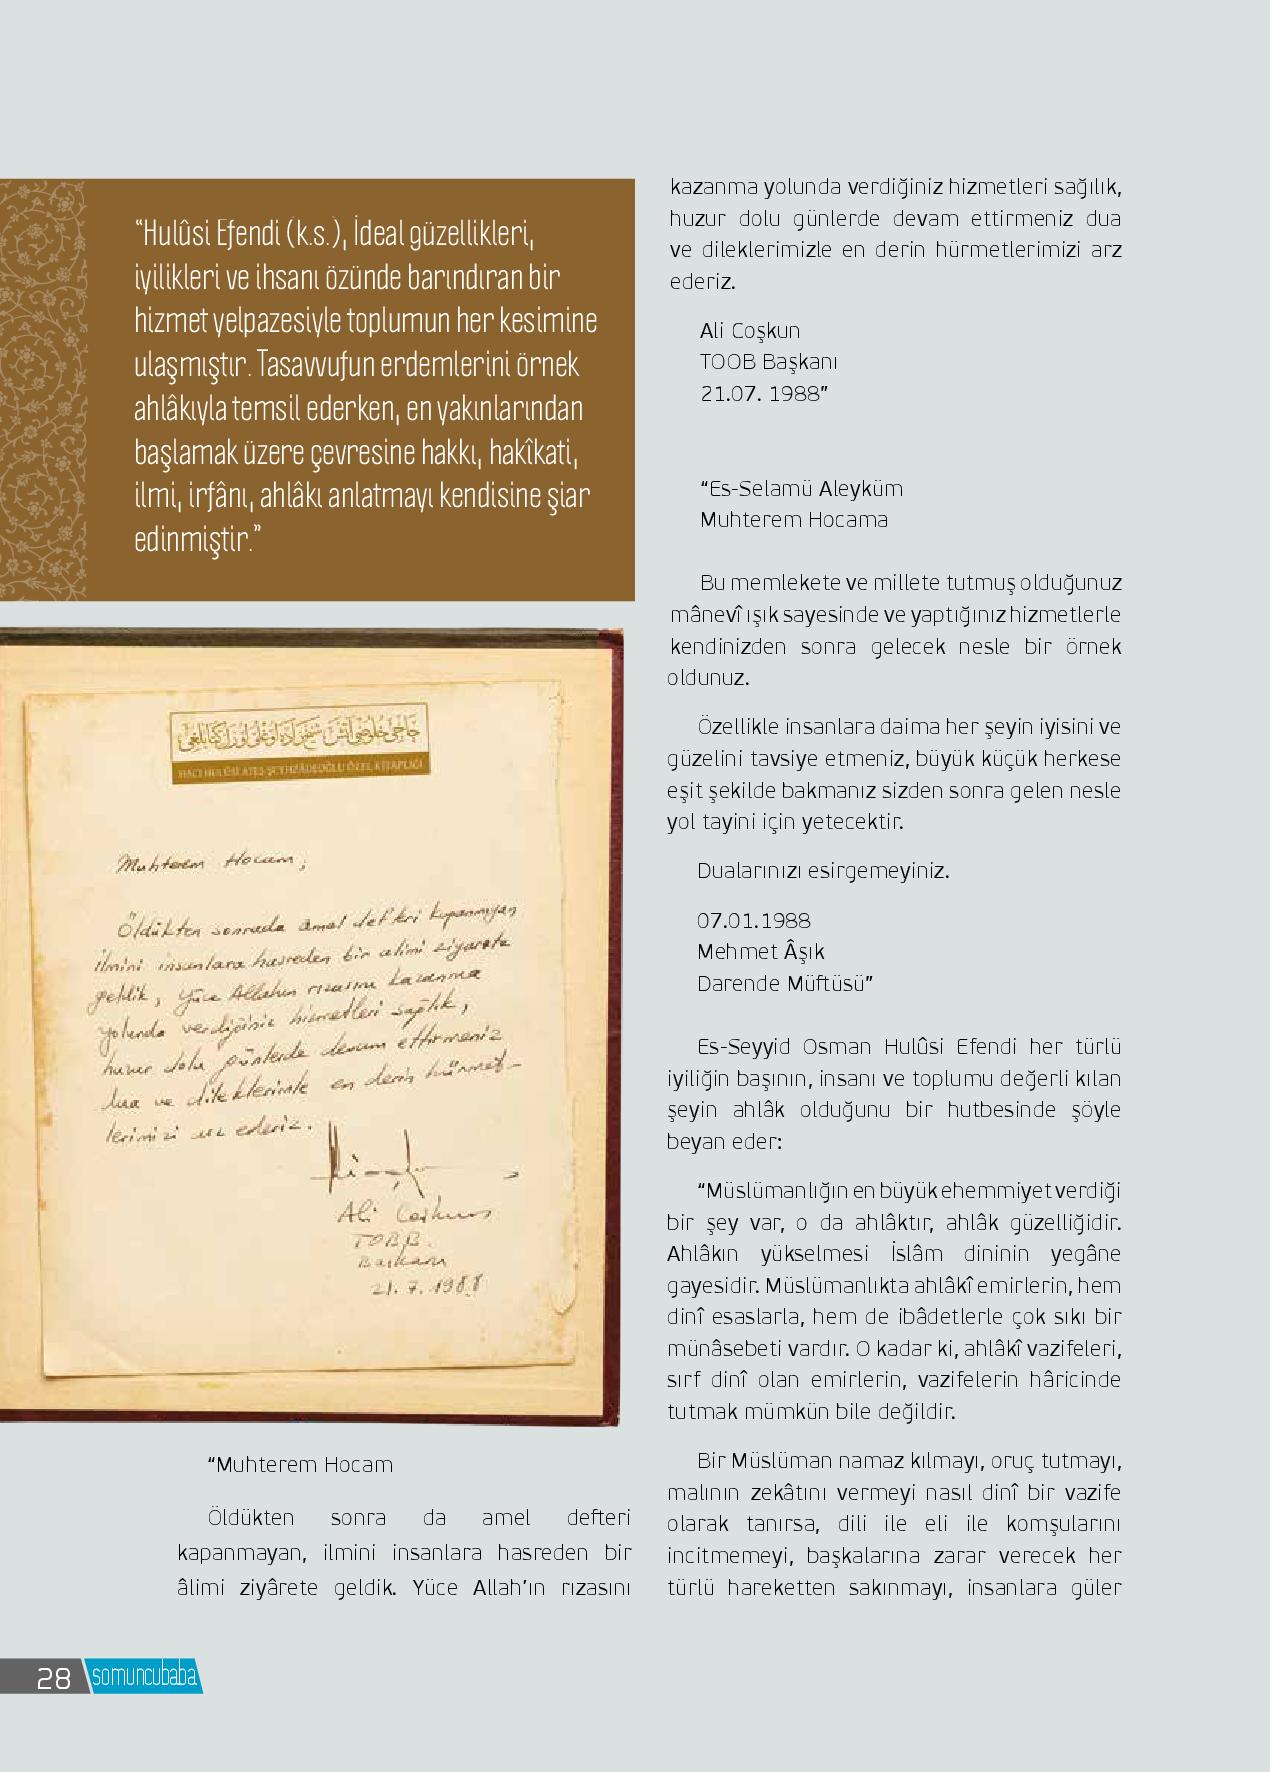 “Hulûsi Efendi (k.s.), İdeal güzellikleri,
iyilikleri ve ihsanı özünde barındıran bir
hizmet yelpazesiyle toplumun her kesimine
ulaşmıştır. Tasavvufun erdemlerini örnek
ahlâkıyla temsil ederken, en yakınlarından
başlamak üzere çevresine hakkı, hakîkati,
ilmi, irfânı, ahlâkı anlatmayı kendisine şiar
edinmiştir.”
HACI HULÛSİ ATEŞ ŞEYHZÂDEOĞLU ÖZEL KİTAPLIĞI
Muhterem Hocam,
Öldükten sonrada amel defteri kapanmıyan
ilmini insanlara hasreden bir alimi ziyarete
geldik, Yüce Allahın rızasını kazanma
yolunda verdiğiniz hizmetleri sağlık,
huzur dolu günlerde devam ettirmeniz
dua ve dileklerimle en derin hürmet-
lerimizi arz ederiz.
Ali Coşkun
TOBB
Başkanı
21.7.1988
“Muhterem Hocam
Öldükten sonra da amel defteri
kapanmayan, ilmini insanlara hasreden bir
âlimi ziyârete geldik. Yüce Allah’ın rızasını
kazanma yolunda verdiğiniz hizmetleri sağılık,
huzur dolu günlerde devam ettirmeniz dua
ve dileklerimizle en derin hürmetlerimizi arz
ederiz.
Ali Coşkun
TOOB Başkanı
21.07. 1988”
“Es-Selamü Aleyküm
Muhterem Hocama
Bu memlekete ve millete tutmuş olduğunuz
mânevî ışık sayesinde ve yaptığınız hizmetlerle
kendinizden sonra gelecek nesle bir örnek
oldunuz.
Özellikle insanlara daima her şeyin iyisini ve
güzelini tavsiye etmeniz, büyük küçük herkese
eşit şekilde bakmanız sizden sonra gelen nesle
yol tayini için yetecektir.
Dualarınızı esirgemeyiniz.
07.01.1988
Mehmet Âşık
Darende Müftüsü”
Es-Seyyid Osman Hulûsi Efendi her türlü
iyiliğin başının, insanı ve toplumu değerli kılan
şeyin ahlâk olduğunu bir hutbesinde şöyle
beyan eder:
“Müslümanlığın en büyük ehemmiyet verdiği
bir şey var, o da ahlâktır, ahlâk güzelliğidir.
Ahlâkın yükselmesi İslâm dininin yegâne
gayesidir. Müslümanlıkta ahlâkî emirlerin, hem
dinî esaslarla, hem de ibâdetlerle çok sıkı bir
münâsebeti vardır. O kadar ki, ahlâkî vazifeleri,
sırf dinî olan emirlerin, vazifelerin hâricinde
tutmak mümkün bile değildir.
Bir Müslüman namaz kılmayı, oruç tutmayı,
malının zekâtını vermeyi nasıl dinî bir vazife
olarak tanırsa, dili ile eli ile komşularını
incitmemeyi, başkalarına zarar verecek her
türlü hareketten sakınmayı, insanlara güler
28 somuncubaba